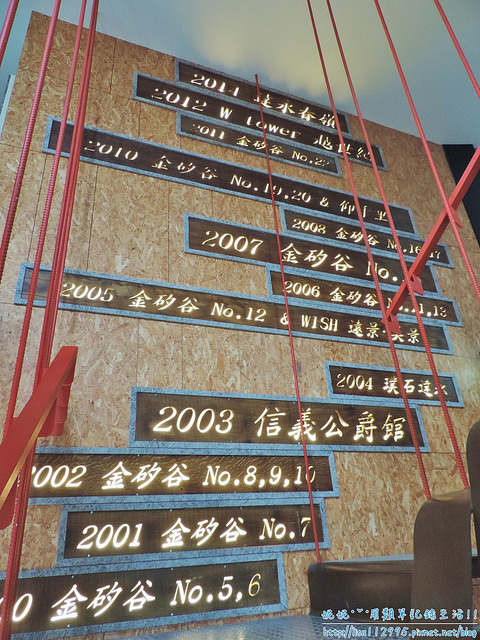 2014 達永春嶺
2012 W tower 越世紀
2011 金矽谷 No.22
2010 金矽谷 No.19,20 & 仰千里
2008 金矽谷 No.16
2007 金矽谷 No.
2006 金矽谷
2005 金矽谷 No.12 & WISH 遠景
2004 璞石達永
2003 信義公爵館
2002 金矽谷 No.8,9,10
2001 金矽谷 No.7
0 金矽谷 No.5,6
http://lisa112996.pixnet.net/blog